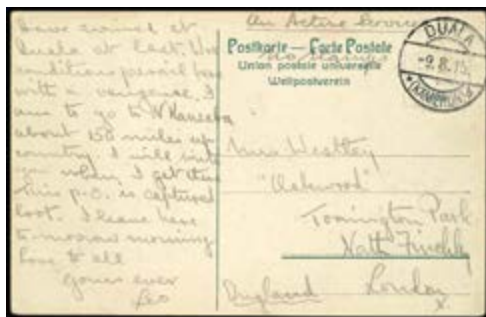 Have arrived at
Duala at last. War
conditions prevail here
with a vengeance. I
am to go to
about 150 miles up
country. I will write
you when I get there
This p.c. is captured
loot. I leave here
to-morrow morning
Love to all
Yours ever
Leo
On Active Service
Postkarte — Carte Postale
Union postale universelle
Weltpostverein
DUALA
-9.8.15
KAMERUN
Mrs Westley
"Oakwood"
Torrington Park
Nath Finchley
London
England